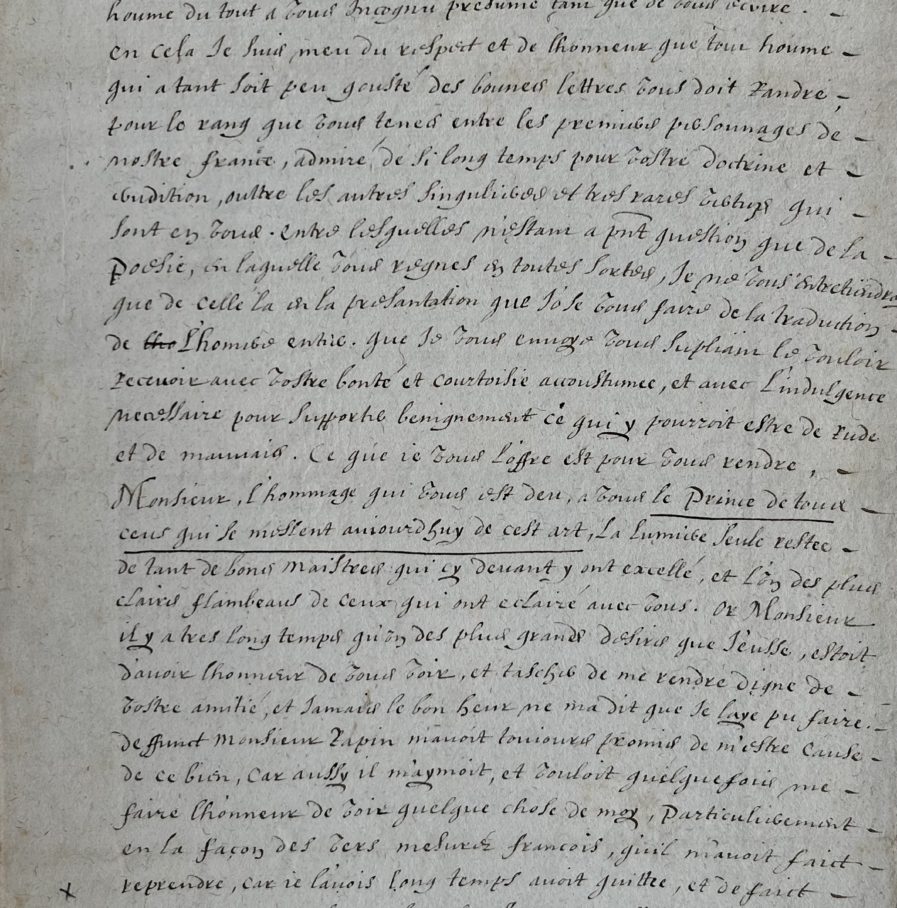 houme du tout a vous Incognu presume tant que de vous ecrire. –
en cela Je suis meu du respect et de lhonneur que tout houme –
qui a tant soit peu gousté des bounes lettres vous doit randre, –
pour le rang que vous tenes entre les premiers personnages de –
nostre france, admiré de si long temps pour vostre doctrine et –
erudition, outtre les autres singulieres et tres rares vertus qui –
sont en vous. entre lesquelles n'estant a pnt question que de la –
Poesie, en laquelle vous regnes en toutes sortes, Je ne vous entretiendra
que de celle la en la presantation que J'ose vous faire de la traduction –
de l'homere entier. que Je vous envoye vous supliant le vouloir
recevoir avec vostre bonté et courtoisie accoustumee, et avec l'indulgence
necessaire pour supporter benignement ce qui y pourroit estre de rude
et de mauvais. Ce que ie vous l'offre est pour vous rendre, –
Monsieur, l'hommage qui vous est deu, a vous le Prince de tous –
ceus qui se meslent auiourdhuy de cest art, la lumiere seule restee –
de tant de bons maistres qui cy devant y ont excellé, et l'un des plus
clairs flambeaus de ceux qui ont eclairé avec vous. Or Monsieur
il y a tres long temps qu'un des plus grands desirs que J'eusse, estoit
d'avoir lhonneur de vous voir, et tascher de me rendre digne de –
vostre amitié, et Jamais le bon heur ne ma dit que Je laye pu faire. –
deffunct Monsieur Rapin m'avoit toujours promis de m'estre cause –
de ce bien, car aussy il m'aymoit, et vouloit quelque fois me –
faire lhonneur de voir quelque chose de moy, particulierement –
en la façon des vers mesurez francois, qu'il m'avoit faict –
x reprendre, car ie l'avois long temps avoit quittee, et de faict –